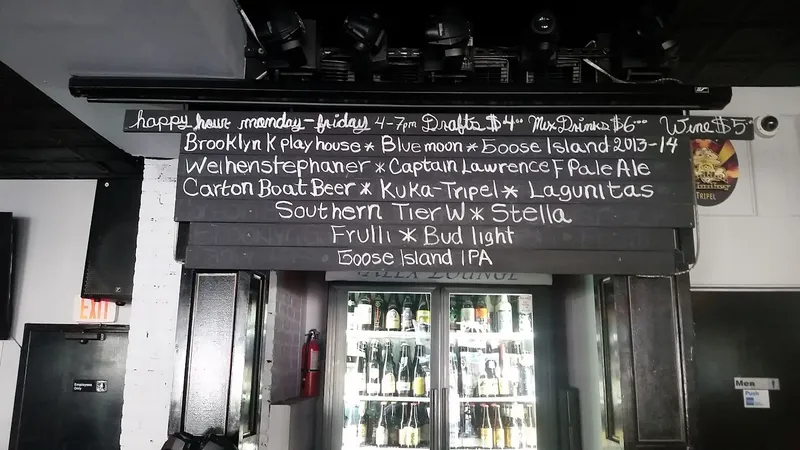 happy hour monday-friday 4-7pm Drafts $4.00 Mix Drinks $6.00 Wine $5.00
Brooklyn K playhouse * Bluemoon * Goose Island 2013-14
Weihenstephaner * Captain Lawrence F Pale Ale
Carton Boat Beer * Kuka-Tripel * Lagunitas
Southern Tier W * Stella
Frulli * Bud light
Goose Island IPA
LOUNGE
TRIPEL
EXIT
Employees Only
Men
Push